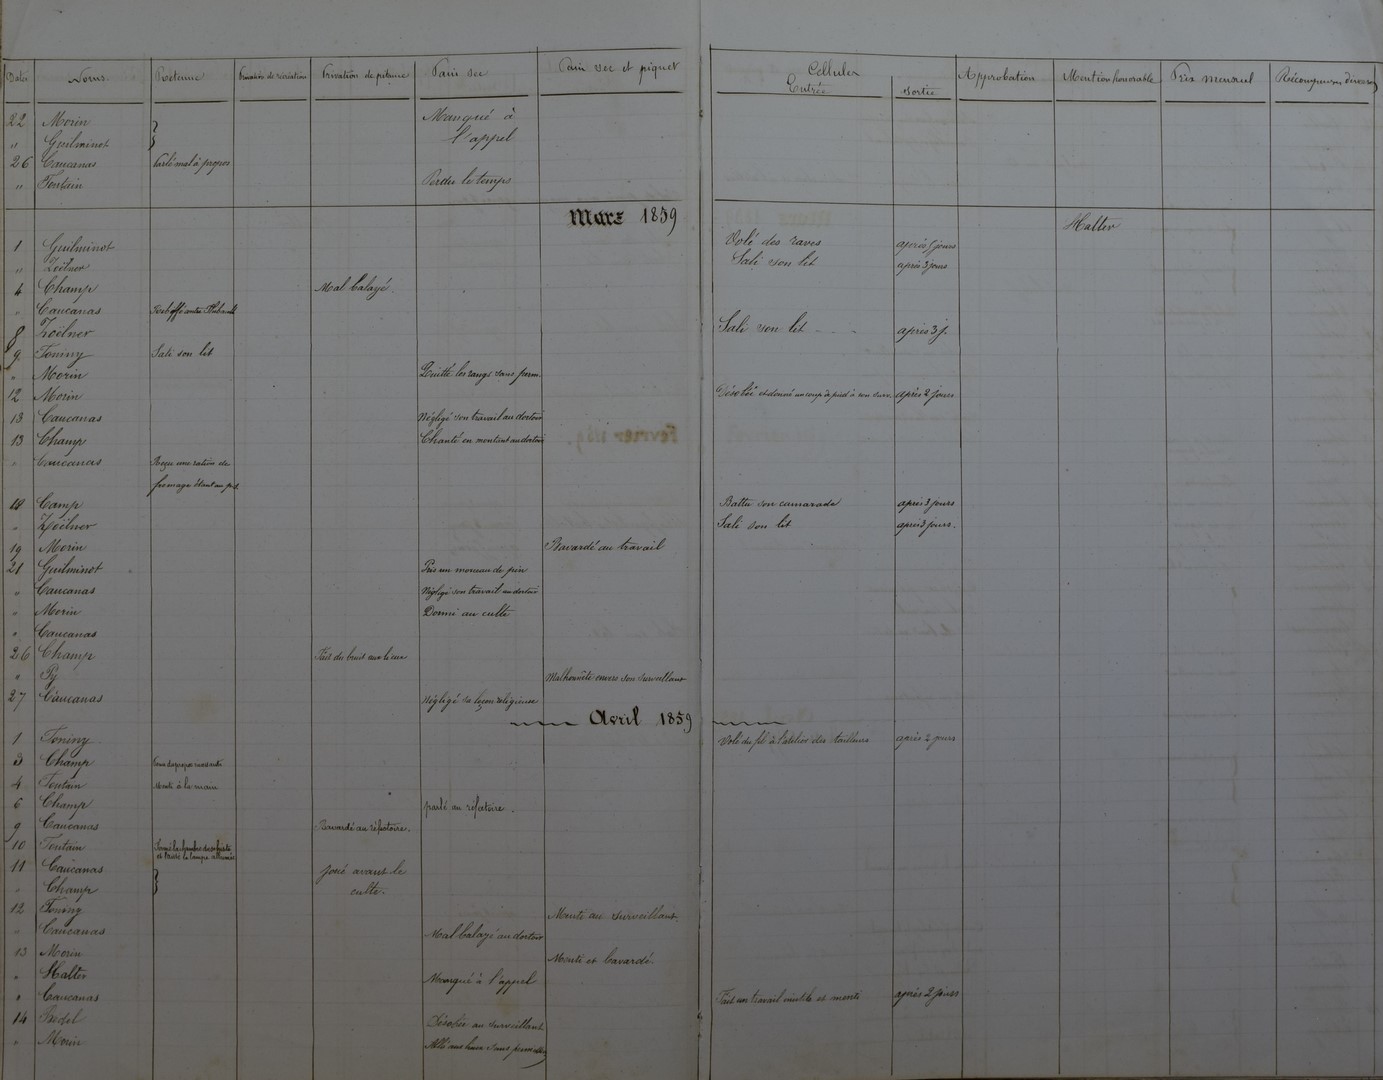 Dates Noms Retenue Privation de récréation Privation de pitance Pain sec Pain sec et piquet Cellules Entrée Sortie Approbation Mention honorable Prix mensuel Récompenses diverses
22 Morin } Manqué à
" Guilminot } l'appel
26 Caucanas Parlé mal à propos
" Fontain Perdu le temps
Mars 1859
Halter
1 Guilminot Volé des raves après 5 jours
" Zoëlner Sali son lit après 3 jours
4 Champ Mal balayé.
" Caucanas
8 Zoëlner Sali son lit après 3 j.
9 Toniny Sali son lit
" Morin Quitté les rangs sans perm.
12 Morin Désobéi et donné un coup de pied à son surv. après 2 jours
13 Caucanas Négligé son travail au dortoir
13 Champ Chanté en montant au dortoir
" Caucanas Reçu une ration de
fromage étant au p.s.
18 Camp Battu son camarade après 3 jours
" Zoëlner Sali son lit après 3 jours.
19 Morin Bavardé au travail
21 Guilminot Pris un morceau de
" Caucanas Négligé son travail au dortoir
" Morin Dormi au culte
" Caucanas
26 Champ Fait du bruit
" Py Malhonnête envers son surveillant
27 Caucanas Négligé sa leçon religieuse
Avril 1859
1 Toniny. Volé du fil à l'atelier des tailleurs après 2 jours
3 Champ
4 Fontain Menti à la main
6 Champ parlé au réfectoire.
9 Caucanas Bavardé au réfectoire.
10 Fontain
et laissé la lampe allumée
11 Caucanas } Joué avant le
" Champ } culte.
12 Toniny Menti au surveillant
" Caucanas Mal balayé au dortoir
13 Morin Menti et bavardé.
" Halter Manqué à l'appel
" Caucanas Fait un travail inutile et menti après 2 jours
14 Désobéi au surveillant
" Morin Allé aux lieux sans permission